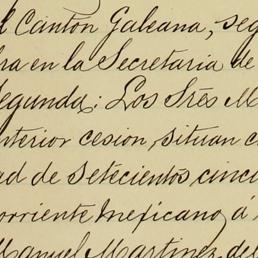 l Canton Galeana, seg
bra en la Secretaria de
egunda: Los Trés M
nterior cesion, situan e
ad de setecientos cinc
orriente mejicano, á
Manuel Martinez, del